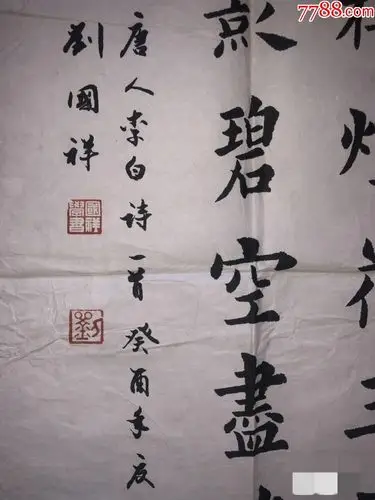 影碧空盡
唐人李白詩一首 癸酉年夏
劉國祥
國祥學書
劉
7788.com